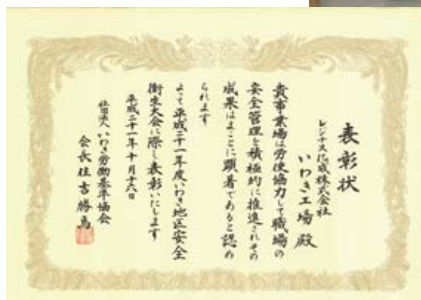 表彰状
レジナス化成株式会社
いわき工場 殿
貴事業場は労使協力して職場の
安全管理を積極的に推進されその
成果はまことに顕著であると認め
られます
よって平成二十一年度いわき地区安全
衛生大会に際し表彰いたします
平成二十一年十月十六日
社団法人 いわき労働基準協会
会長 住吉勝馬